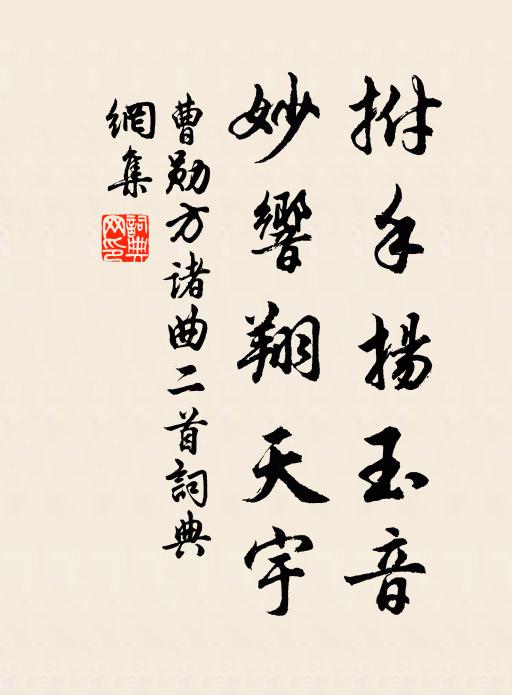 拊手揚玉音
妙響翔天宇
曹勛方諸曲二首詞典
網集
詞典網印